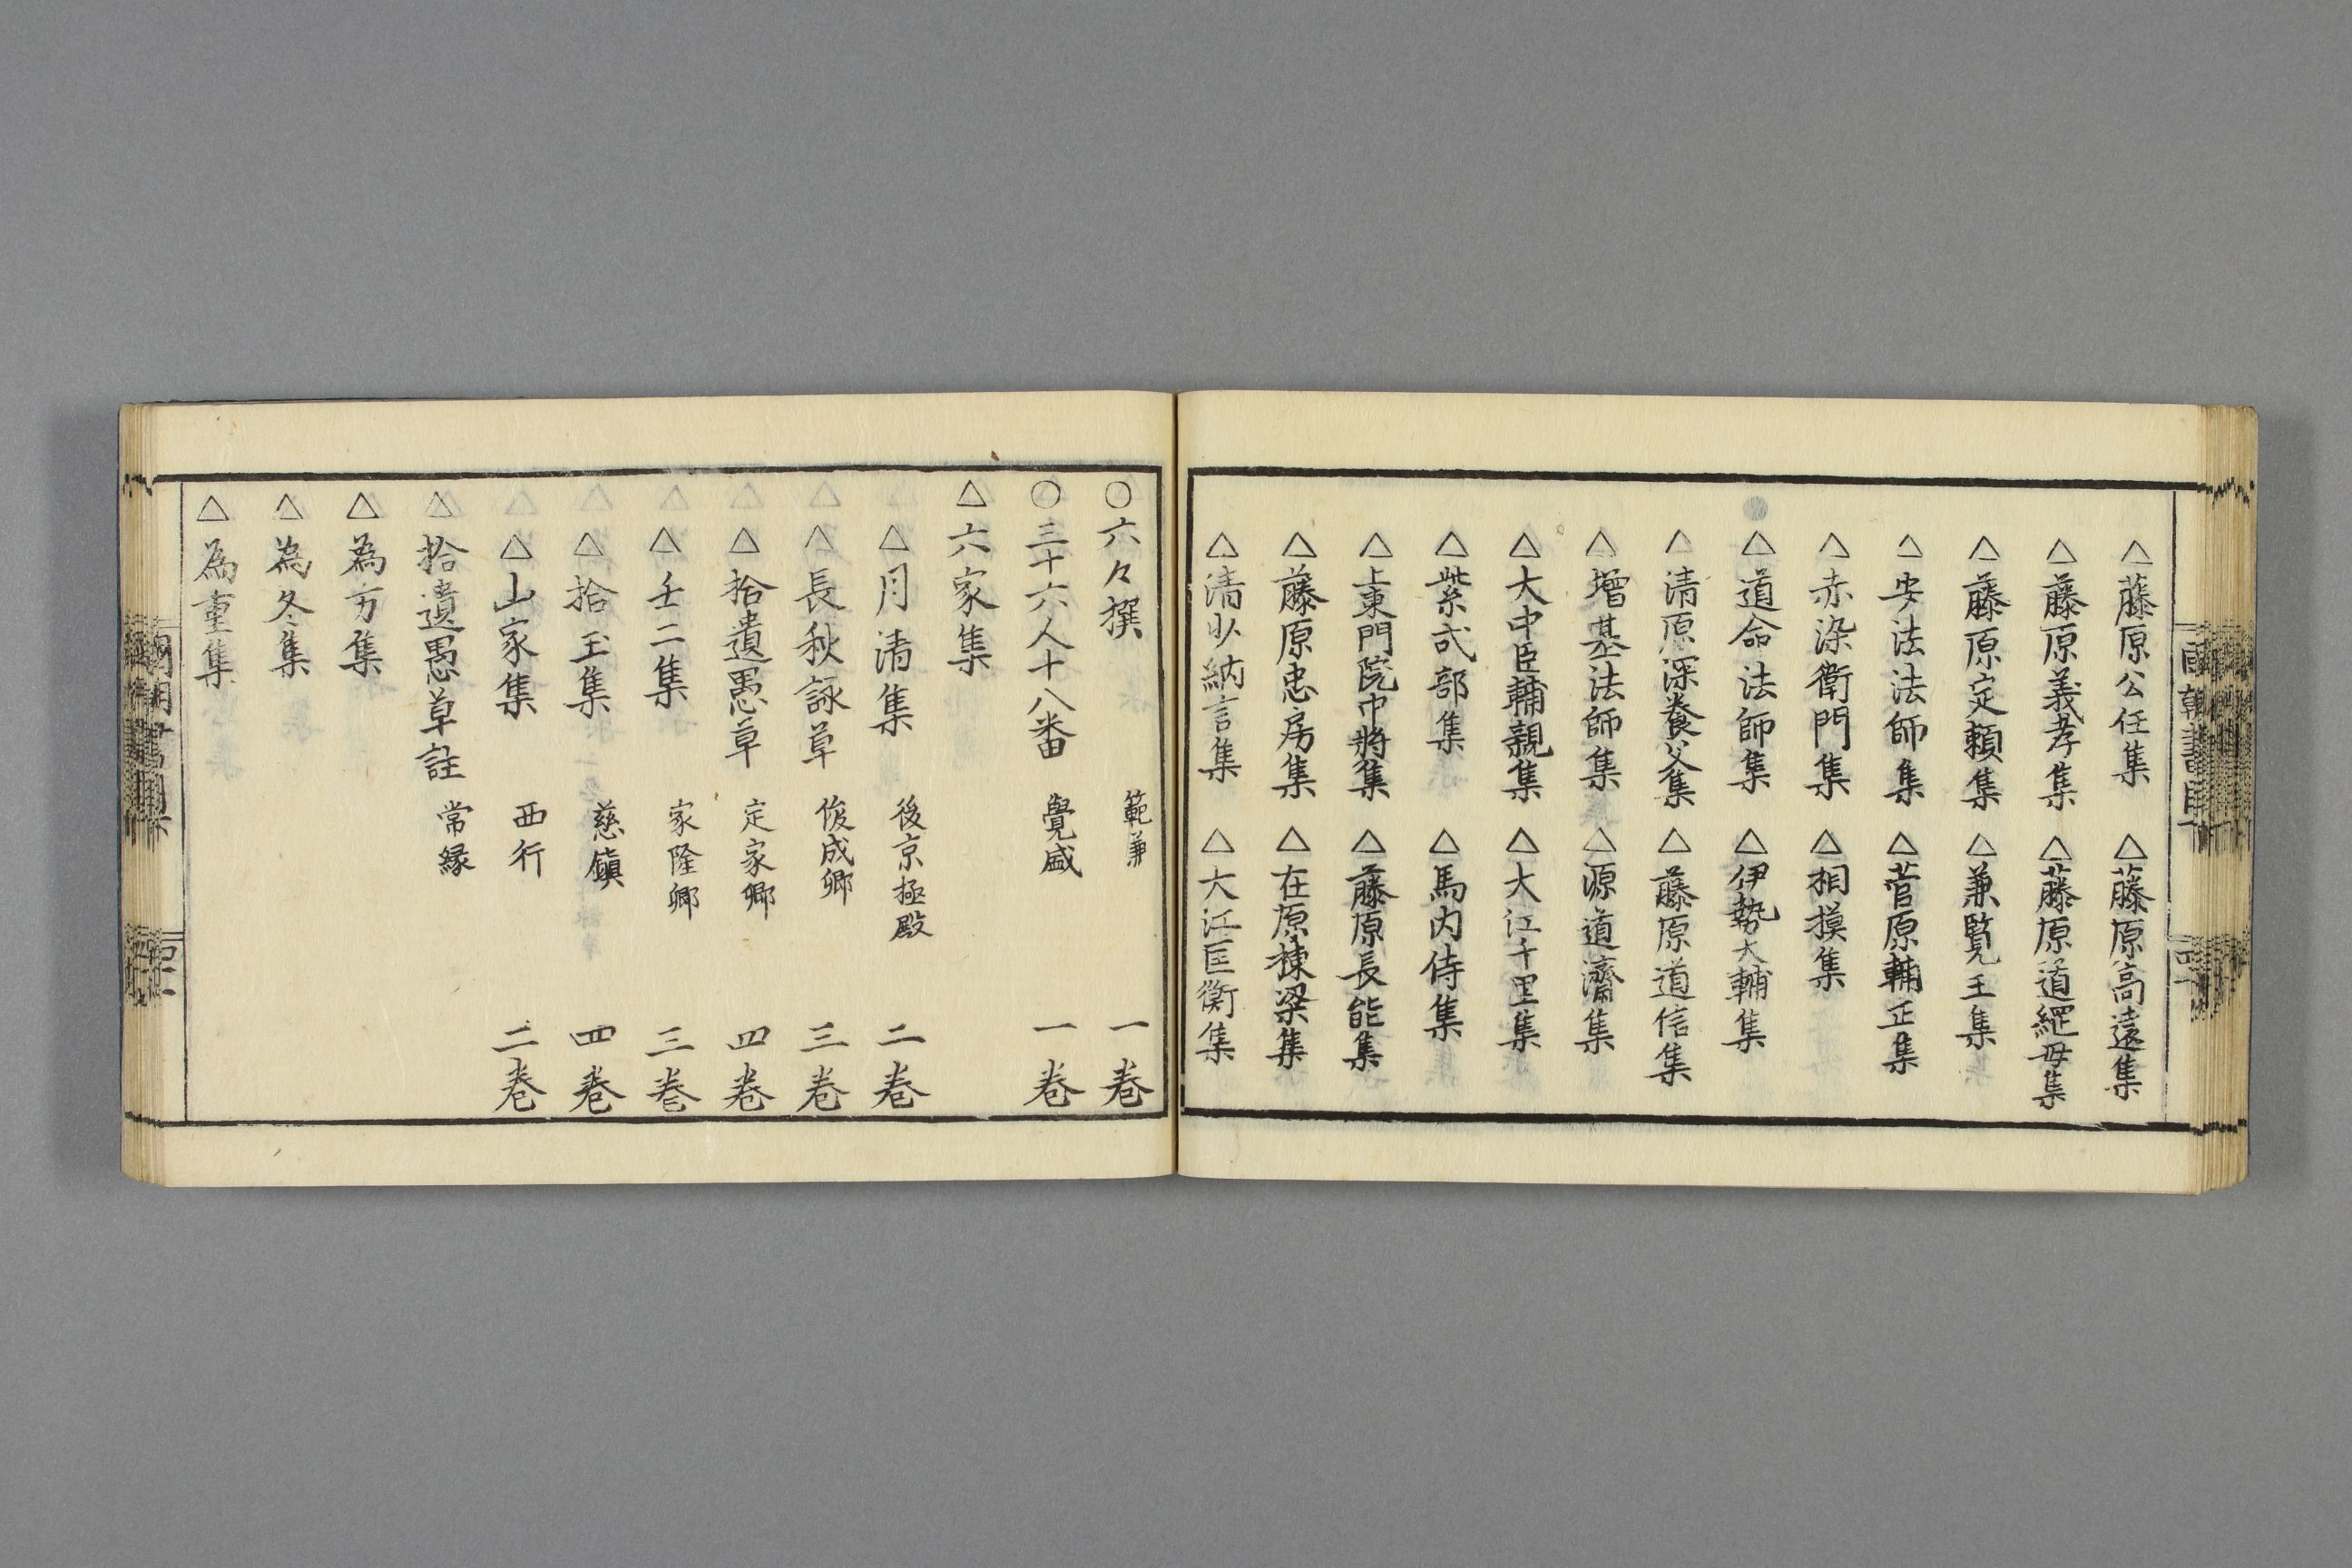 △藤原公任集 △藤原高遠集
△藤原義孝集 △藤原道綱母集
△藤原定頼集 △兼覧王集
△安法法師集 △菅原輔正集
△赤染衛門集 △相摸集
△道命法師集 △伊勢大輔集
△清原深養父集 △藤原道信集
△増基法師集 △源道濟集
△大中臣輔親集 △大江千里集
△紫式部集 △馬内侍集
△上東門院中將集 △藤原長能集
△藤原忠房集 △在原棟梁集
△清少納言集 △大江匡衡集
○六々撰 範兼 一巻
○三十六人十八番 覺盛 一巻
△六家集
△月清集 後京極殿 二巻
△長秋詠草 俊成卿 三巻
△拾遺愚草 定家卿 四巻
△壬二集 家隆卿 三巻
△拾玉集 慈鎮 四巻
△山家集 西行 二巻
△拾遺愚草註 常縁
△為方集
△為冬集
△為重集